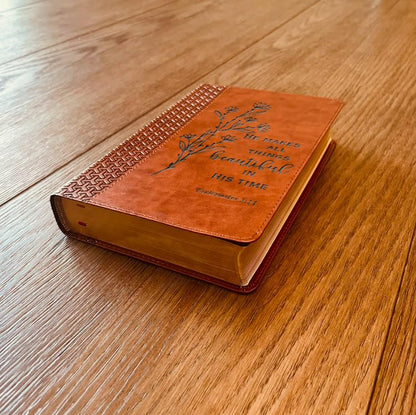 He MAKES
ALL
THINGS
beautiful
IN
HIS TIME
Ecclesiastes 3:11